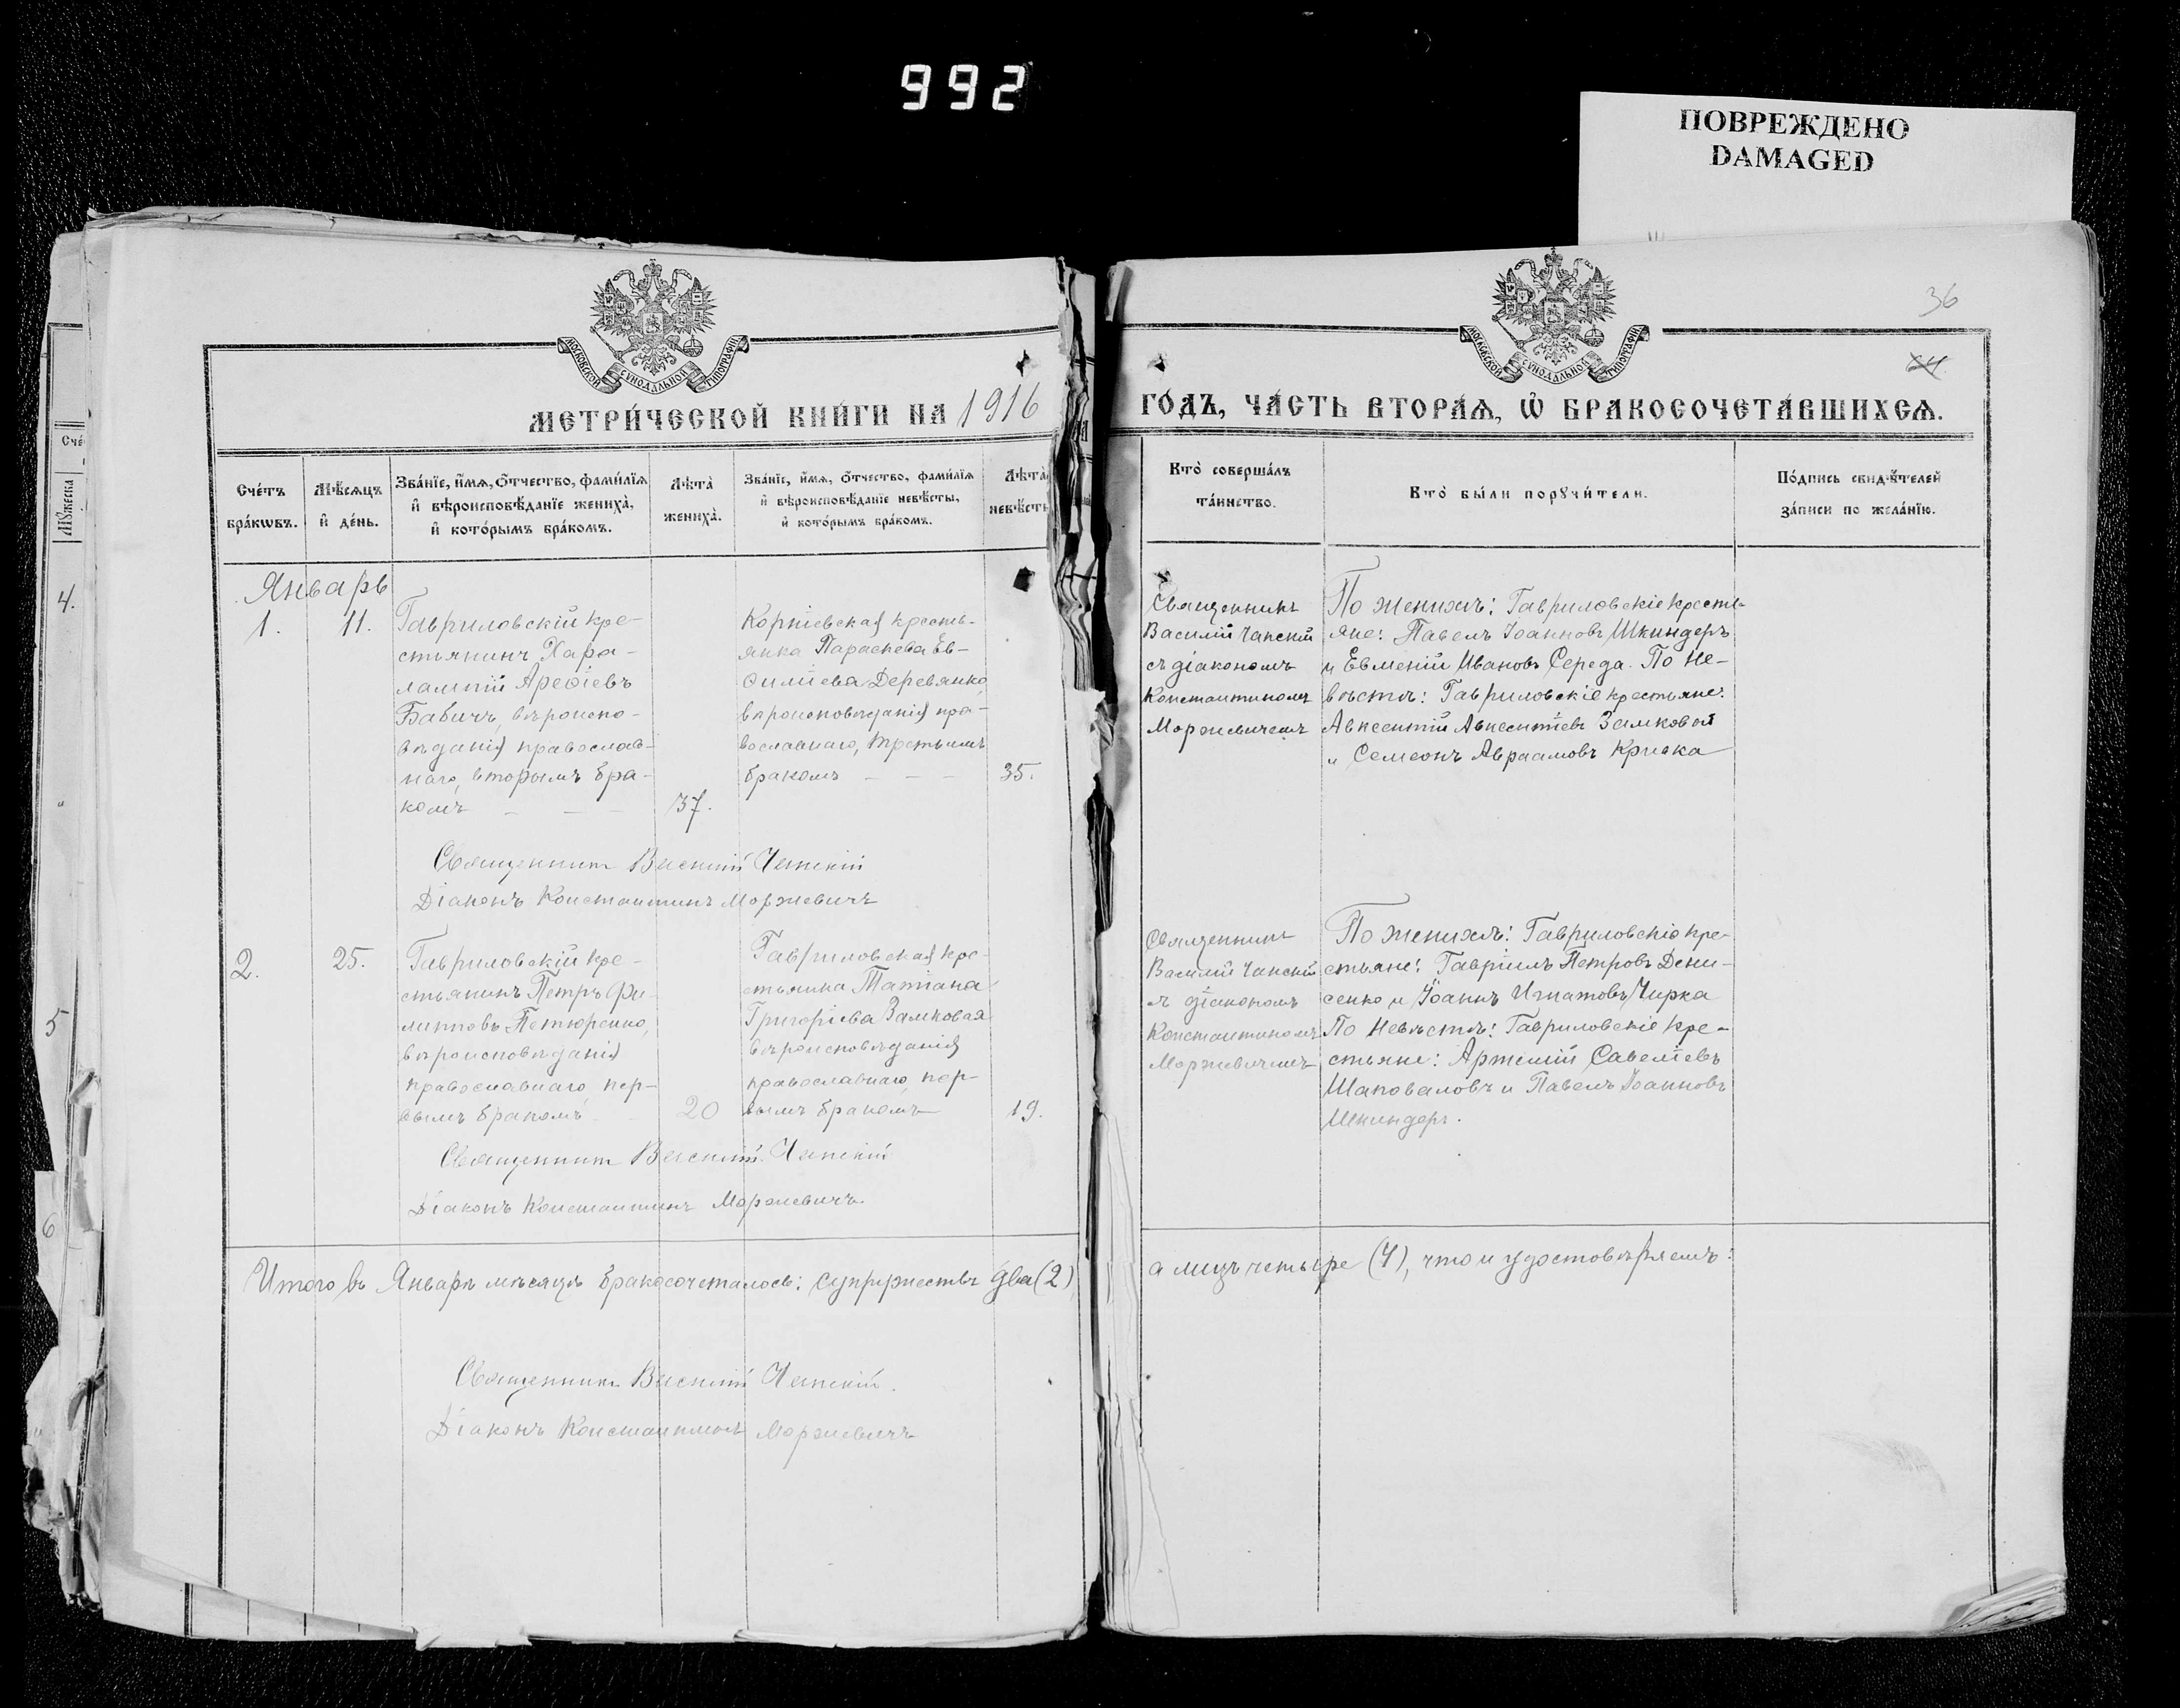 992
ПОВРЕЖДЕНО
DAMAGED
36
МОСКОВСКОЙ СѴНОДАЛЬНОЙ ТИПОГРАФІИ
МОСКОВСКОЙ СѴНОДАЛЬНОЙ ТИПОГРАФІИ
МЕТРИ́ЧЕСКОЙ КНИ́ГИ НА 1916
ГО́ДЪ, ЧА́СТЬ ВТОРА́Ѧ, Ѡ҆ БРАКОСОЧЕТА́ВШИХСѦ.
Сче́тъ
бра́кѡвъ.
Мѣ́сѧцъ
и҆ де́нь.
Зва́нїе, и҆́мѧ, ѻ҆́тчество, фами́лїѧ
и҆ вѣроисповѣ́данїе жениха̀,
и҆ кото́рымъ бра́комъ.
Лѣ́та̀
жениха̀.
Зва́нїе, и҆́мѧ, ѻ҆́тчество, фами́лїѧ
и҆ вѣроисповѣ́данїе невѣ́сты,
и҆ кото́рымъ бра́комъ.
Лѣ́та̀
невѣ́сты
Кто̀ соверша́лъ
та́инство.
Кто̀ бы́ли порꙋчи́тели.
По́дпись свидѣ́телей
за́писи по жела́нїю.
Январь
1.
11.
Гавриловскій кре-
стьянинъ Хара-
лампій Арефіевъ
Бабичъ, вѣроиспо-
вѣданія православ-
наго, вторымъ бра-
комъ
37.
Корніевская кресть-
янка Параскева Ев-
филіева Деревянко,
вѣроисповѣданія пра-
вославнаго, третьимъ
бракомъ
35.
Священникъ
Василій Чапскій
съ діакономъ
Константиномъ
Моржевичемъ
По женихѣ: Гавриловскіе кресть-
яне: Павелъ Іоанновъ Шкиндеръ
и Евменій Ивановъ Середа. По не-
вѣстѣ: Гавриловскіе крестьяне:
Авксентій Авксентіевъ Замковой
и Семеонъ Авраамовъ Кривка
Священникъ Василій Чапскій
Діаконъ Константинъ Моржевичъ
2.
25.
Гавриловскій кре-
стьянинъ Петръ Фи-
липповъ Петюренко,
вѣроисповѣданія
православнаго, пер-
вымъ бракомъ
20
Гавриловская кре-
стьянка Татіана
Григоріева Замковая
вѣроисповѣданія
православнаго, пер-
вымъ бракомъ
19.
Священникъ
Василій Чапскій
съ діакономъ
Константиномъ
Моржевичемъ
По женихѣ: Гавриловскіе кре-
стьяне: Гавріилъ Петровъ Дени-
сенко и Іоаннъ Игнатовъ Чирка
По невѣстѣ: Гавриловскіе кре-
стьяне: Артемій Савеліевъ
Шаповаловъ и Павелъ Іоанновъ
Шкиндеръ.
Священникъ Василій Чапскій
Діаконъ Константинъ Моржевичъ.
Итого въ Январѣ мѣсяцѣ бракосочеталось: супружествъ два (2)
а лицъ четыре (4), что и удостовѣряемъ:
Священникъ Василій Чапскій.
Діаконъ Константинъ Моржевичъ
Сче
Мꙋ́жеска
4.
5
6